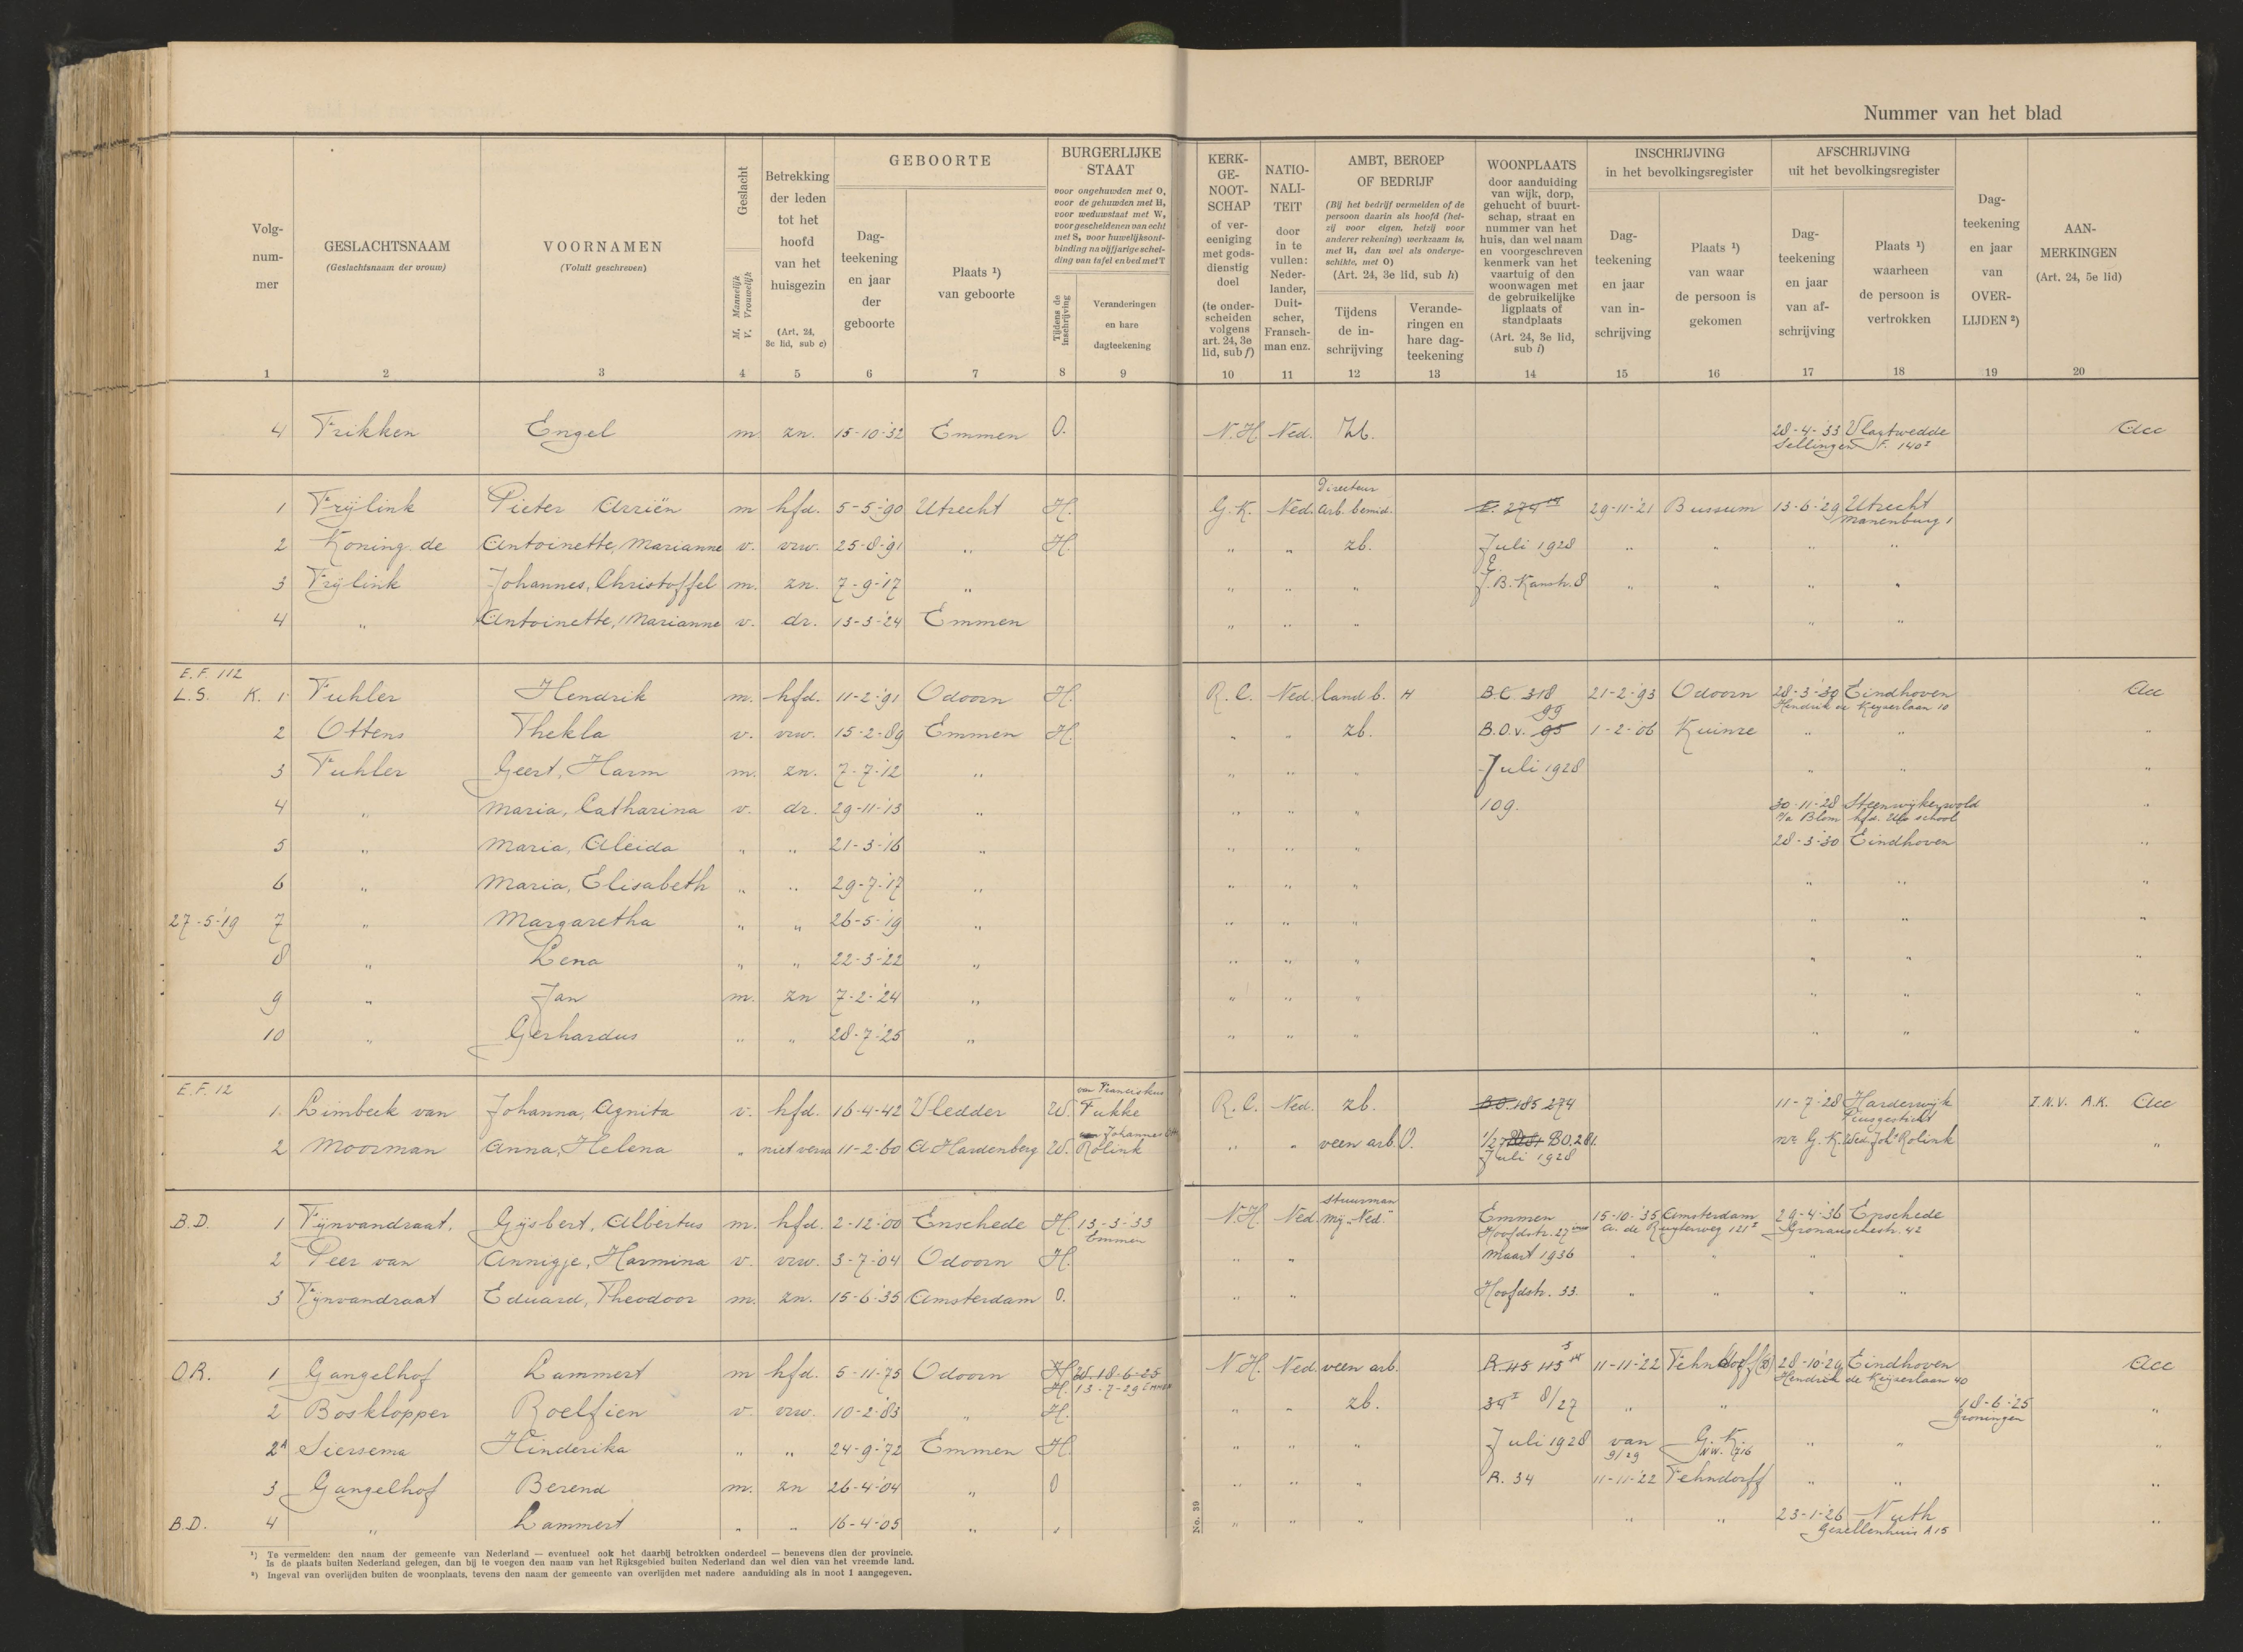 Nummer van het blad
Volg-
num-
mer
GESLACHTSNAAM
(Geslachtsnaam der vrouw)
VOORNAMEN
(Voluit geschreven)
Geslacht
M. Mannelijk
V. Vrouwelijk
Betrekking
der leden
tot het
hoofd
van het
huisgezin
(Art. 24,
3e lid, sub c)
GEBOORTE
Dag-
teekening
en jaar
der
geboorte
Plaats ¹)
van geboorte
BURGERLIJKE
STAAT
voor ongehuwden met O,
voor de gehuwden met H,
voor weduwstaat met W,
voor gescheidenen van echt
met S, voor huwelijksont-
binding na vijfjarige schei-
ding van tafel en bed met T
Tijdens de
inschrijving
Veranderingen
en hare
dagteekening
KERK-
GE-
NOOT-
SCHAP
of ver-
eeniging
met gods-
dienstig
doel
(te onder-
scheiden
volgens
art. 24, 3e
lid, sub f)
NATIO-
NALI-
TEIT
door
in te
vullen:
Neder-
lander,
Duit-
scher,
Fransch-
man enz.
AMBT, BEROEP
OF BEDRIJF
(Bij het bedrijf vermelden of de
persoon daarin als hoofd (het-
zij voor eigen, hetzij voor
anderer rekening) werkzaam is,
met H, dan wel als onderge-
schikte, met O)
(Art. 24, 3e lid, sub h)
Tijdens
de in-
schrijving
Verande-
ringen en
hare dag-
teekening
WOONPLAATS
door aanduiding
van wijk, dorp,
gehucht of buurt-
schap, straat en
nummer van het
huis, dan wel naam
en voorgeschreven
kenmerk van het
vaartuig of den
woonwagen met
de gebruikelijke
ligplaats of
standplaats
(Art. 24, 3e lid,
sub i)
INSCHRIJVING
in het bevolkingsregister
Dag-
teekening
en jaar
van in-
schrijving
Plaats ¹)
van waar
de persoon is
gekomen
AFSCHRIJVING
uit het bevolkingsregister
Dag-
teekening
en jaar
van af-
schrijving
Plaats ¹)
waarheen
de persoon is
vertrokken
Dag-
teekening
en jaar
van
OVER-
LIJDEN ²)
AAN-
MERKINGEN
(Art. 24, 5e lid)
1 2 3 4 5 6 7 8 9 10 11 12 13 14 15 16 17 18 19 20
4 Frikken Engel m zn. 15-10-'32 Emmen O. N.H. Ned. zb. 28-4-'33 Vlagtwedde Acc
Sellingen F. 140
Directeur
1 Frijlink Pieter Arriën m hfd. 5-5-'90 Utrecht H. G.K. Ned. arb. bemid. E. 274 29-11-'21 Bussum 13-6-'29 Utrecht
Manenburg 1
2 Koning de Antoinette, Marianne v. vrw. 25-8-'91 " H. " " zb. Juli 1928 " " " "
3 Frijlink Johannes, Christoffel m. zn. 7-9-'17 " " " " J.B. Kanstr. 8 " " " "
4 " Antoinette, Marianne v. dr. 13-3-'24 Emmen " " " " "
E.F. 112
L.S. K. 1 Fuhler Hendrik m. hfd. 11-2-'91 Odoorn H. R.C. Ned. land b. H B.C. 318 21-2-'93 Odoorn 28-3-'30 Eindhoven Acc
Hendrik de Keyserlaan 10
99
2 Ottens Thekla v. vrw. 15-2-'89 Emmen H. " " zb. B.O.v. 95 1-2-'06 Kuinre " " "
3 Fuhler Geert, Harm m. zn. 7-7-'12 " " " " Juli 1928 " " "
4 " Maria, Catharina v. dr. 29-11-'13 " " " " 109. 30-11-'28 Steenwijkerwold "
p/a Blom hfd. Ulo school
5 " Maria, Aleida " " 21-3-'16 " " " " 28-3-'30 Eindhoven "
6 " Maria, Elisabeth " " 29-7-'17 " " " " " " "
27-5-'19 7 " Margaretha " " 26-5-'19 " " " " " " "
8 " Lena " " 22-3-'22 " " " " " " "
9 " Jan m. zn 7-2-'24 " " " " " " "
10 " Gerhardus " " 28-7-'25 " " " " " " "
E.F. 12
van Franciskus
1. Limbeek van Johanna, Agnita v. hfd. 16-4-42 Vledder W. Fukke R.C. Ned. zb. 185 274 11-7-'28 Harderwijk I.N.V. A.K. Acc
Piusgesticht
van Johannes
2 Moorman Anna, Helena " niet verw 11-2-60 A. Hardenberg W. Rolink " " veen arb. O. 1/27 BO. 281. nr G.K. Wed. Joh. Rolink "
Juli 1928
Stuurman
B.D. 1 Fijnvandraat. Gijsbert, Albertus m. hfd. 2-12-'00 Enschede H. 13-3-'33 N.H. Ned. mij. „Ned." Emmen 15-10-'35 Amsterdam 29-4-'36 Enschede
Emmen Hoofdstr. 27 a. de Ruyterweg 121 Gronauschestr. 42
2 Peer van Annigje, Harmina v. vrw. 3-7-'04 Odoorn H. " " Maart 1936 " " " "
3 Fijnvandraat Eduard, Theodoor m. zn. 15-6-'35 Amsterdam O. " " Hoofdstr. 33. " " " "
O.R. 1 Gangelhof Lammert m hfd. 5-11-'75 Odoorn H. W. 18-6-25 N.H. Ned. veen arb. R. 45 115 11-11-'22 Fehndorf (D) 28-10-'29 Eindhoven Acc
H. 13-7-29 Emmen Hendrik de Keijzerlaan 40
2 Bosklopper Roelfien v. vrw. 10-2-'83 " H. " " zb. 34 8/27 " " 18-6-'25 "
Groningen
2ᴬ Siersema Hinderika " " 24-9-'72 Emmen H. " " " Juli 1928 van G.K. " " "
9/29 NW. 716
3 Gangelhof Berend m. zn 26-4-'04 " O " " " R. 34 11-11-'22 Fehndorff " " "
B.D. 4 " Lammert " " 16-4-'05 " " " " " " " 23-1-'26 Nuth "
Gezellenhuis A 15
No. 39
¹) Te vermelden: den naam der gemeente van Nederland — eventueel ook het daarbij betrokken onderdeel — benevens dien der provincie.
Is de plaats buiten Nederland gelegen, dan bij te voegen den naam van het Rijksgebied buiten Nederland dan wel dien van het vreemde land.
²) Ingeval van overlijden buiten de woonplaats, tevens den naam der gemeente van overlijden met nadere aanduiding als in noot 1 aangegeven.